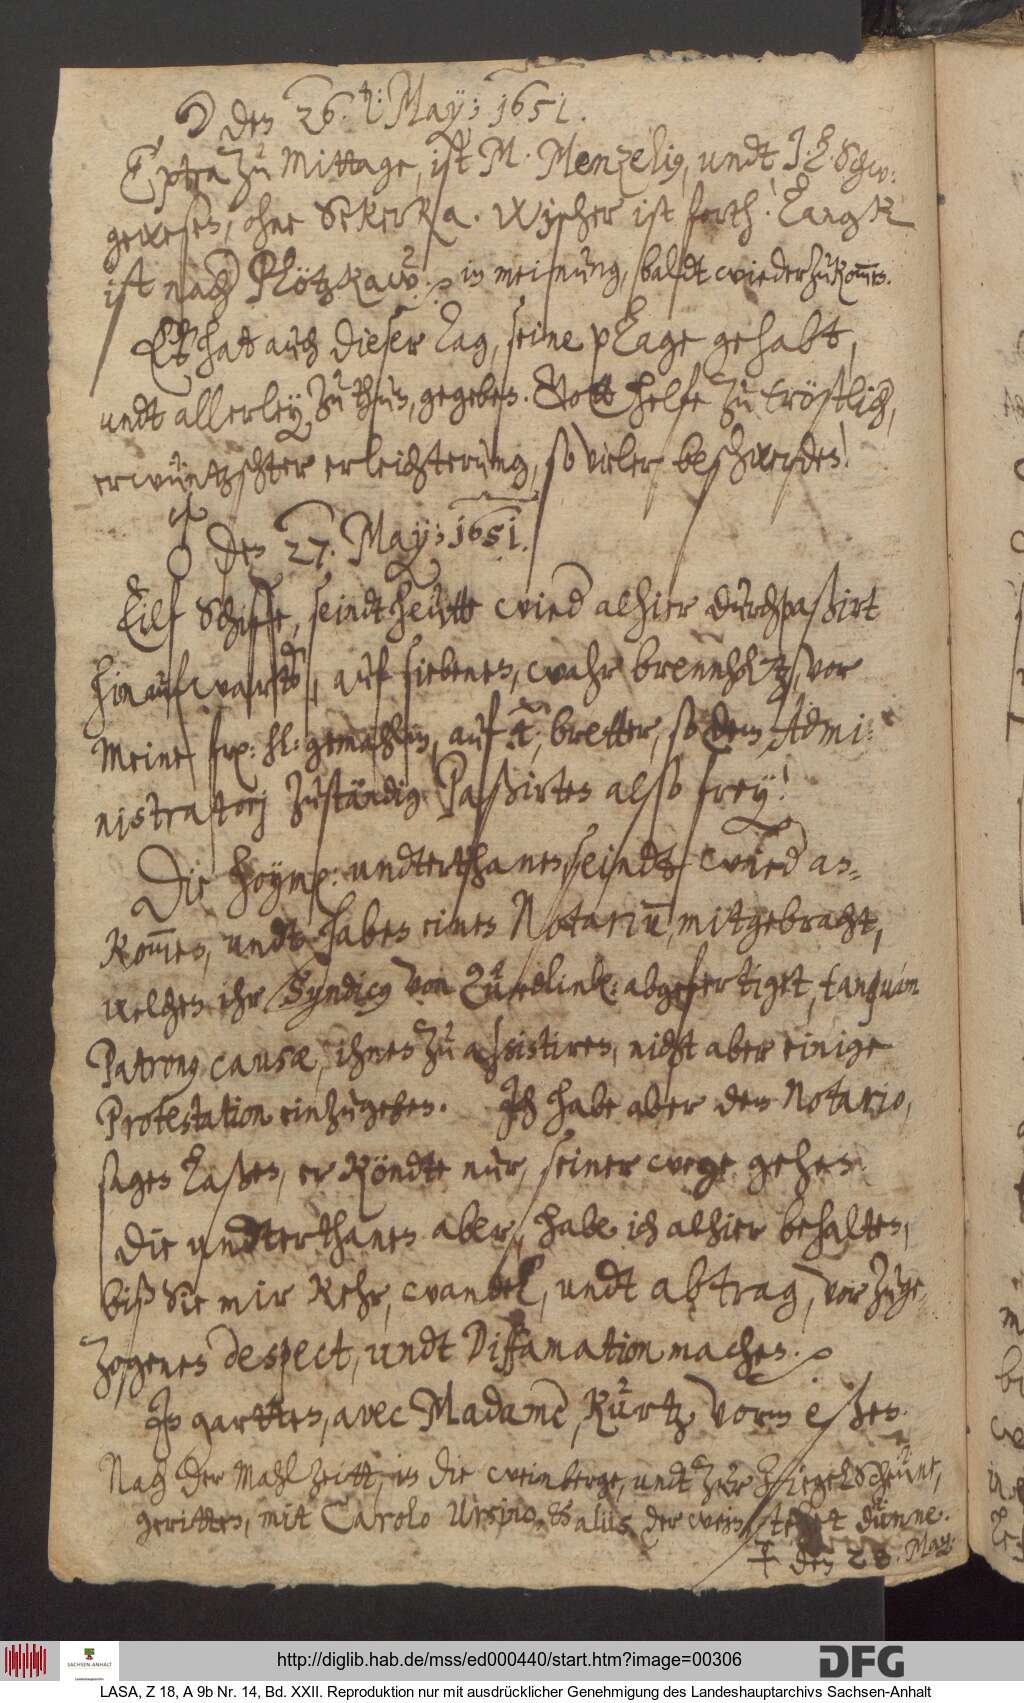 ☽ den 26. t: May: 1651.
Extra zu Mittage, ist M. Menzelig, undt J. E. Schw:
gewesen, ohne Sekerka. Wischer ist forth! Langk
ist nach Plötzkaw in meinung, baldt wiederzukom̄en.
Es hat auch dieser tag, seine plage gehabt,
undt allerley zu thun, gegeben. Gott helfe zu tröstlich,
erwüntzschter erleichterung, so vieler beschwerden!
♂ den 27. May: 1651.
Eilf Schiffe, seindt heutte wied alhier durchpaßirt
hinaufwarts, auf siebenen, wahr brennholtz, vor
Meine frx: hl: gemahlin, auf 4, bretter, so dem Admi:
nistratorj zuständig Paßirten also frey!
Die Hoymx: undterthanen, seindt wied an-
kom̄en, undt haben einen Notariū, mitgebracht,
welchen ihr Syndicg von Quedlinb: abgefertiget, tanquam
Patrong causæ, ihnen zu assistiren, nicht aber einige
Protestation einzugehen. Ich habe aber dem Notario,
sagen laßen, er köndte nur, seiner wege gehen.
Die undterthanen aber, habe ich alhier behalten,
biß Sie mir Kehr, wandel, undt abtrag, vor zuge-
zogenen despect, undt Diffamation machen.
In gartten, avec Madame, kurtz vorm eßen.
Nach der Mahlzeitt, in die weinberge, undt zur Ziegelscheune,
geritten, mit Carolo Ursino, alß der wein stehet dünne.
☿ den 28. May:
http://diglib.hab.de/mss/ed000440/start.htm?image=00306
SACHSEN-ANHALT
DFG
LASA, Z 18, A 9b Nr. 14, Bd. XXII. Reproduktion nur mit ausdrücklicher Genehmigung des Landeshauptarchivs Sachsen-Anhalt